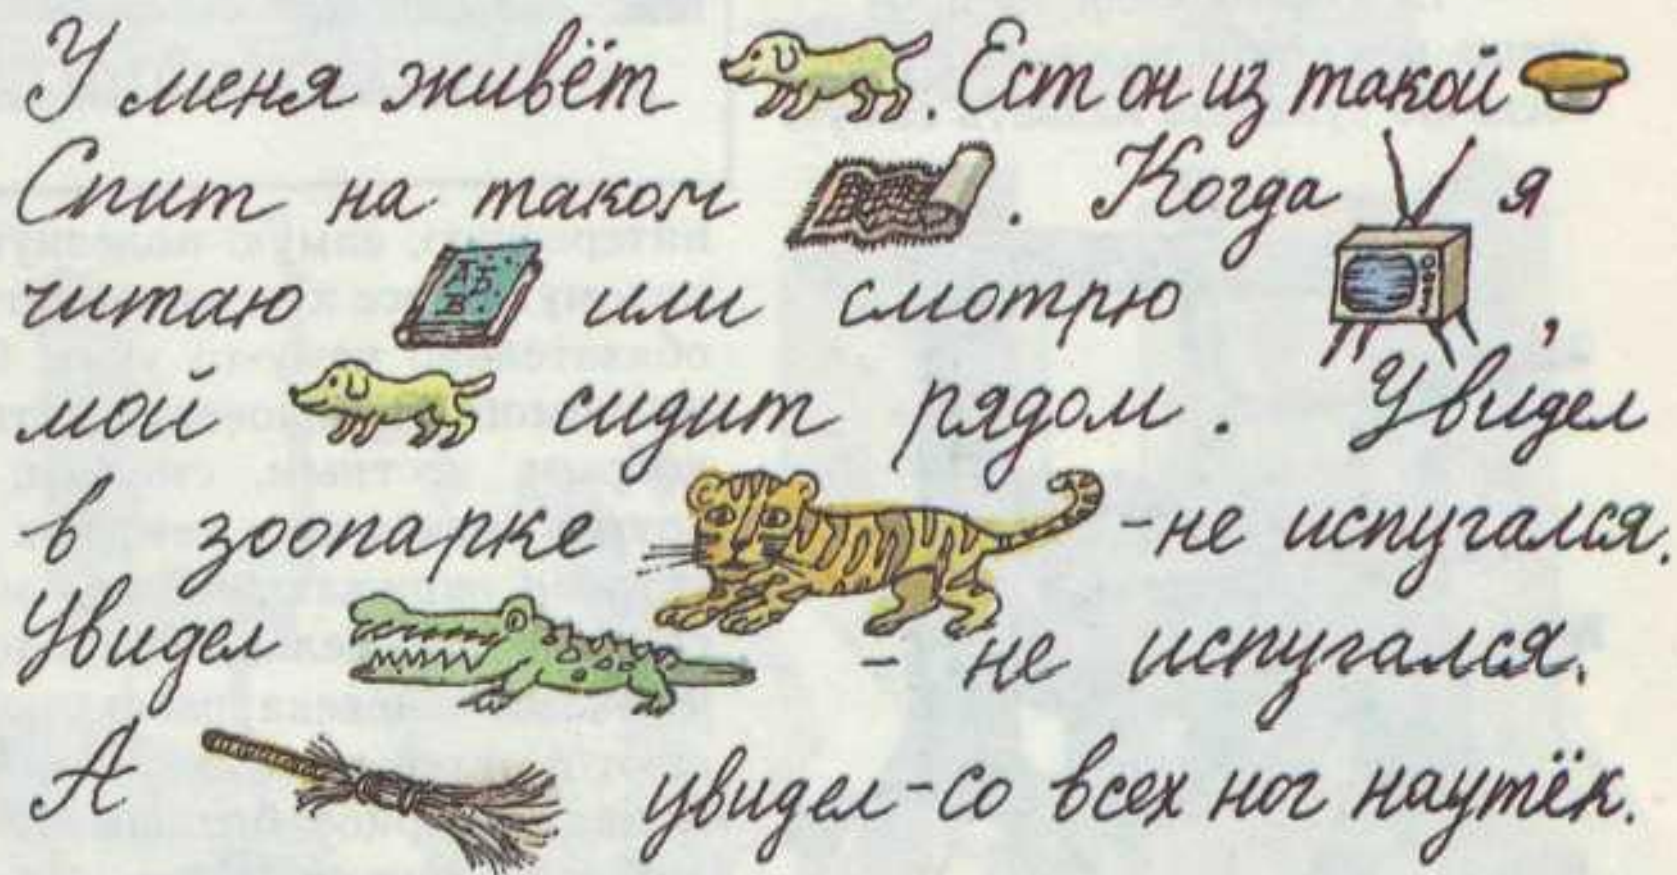 У меня живёт . Ест он из такой
Спит на таком . Когда я
читаю или смотрю ,
мой сидит рядом . Увидел
в зоопарке - не испугался.
Увидел - не испугался.
А увидел - со всех ног наутёк.
АБВ